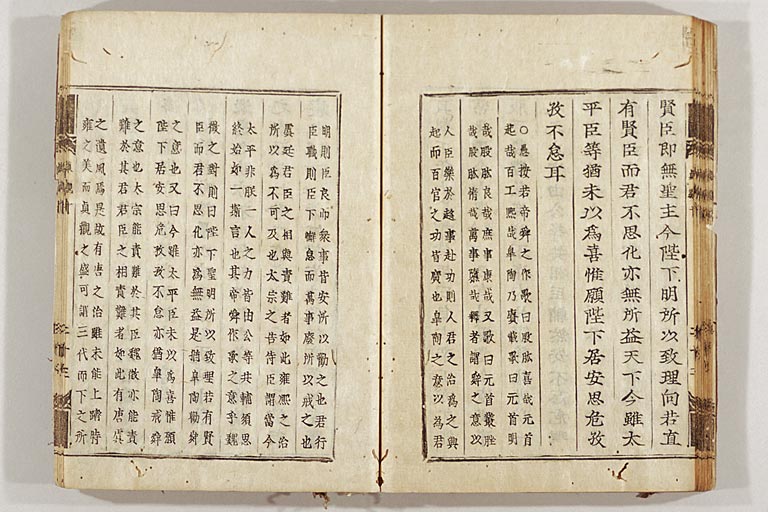 賢臣即無聖主今陛下明所以致理向若直
有賢臣而君不思化亦無所益天下今雖太
平臣等猶未以為喜惟願陛下居安思危孜
孜不怠耳
○愚按君帝舜之作歌曰股肱喜哉元首
起哉百工熙哉皐陶乃賡載歌曰元首明
哉股肱良哉庶事康哉又歌曰元首叢脞
哉股肱惰哉萬事隳哉釋者謂舜之意以
人臣樂於趍事赴功則人君之治為之興
起而百官之功皆廣也皐陶之意以為君
明則臣良而衆事皆安所以勸之也君行
臣職則臣下懈怠而萬事廢所以戒之也
虞廷君臣之相與責難者如此雍熙之治
所以為不可及也太宗之告侍臣謂當今
太平非朕一人之力皆由公等共輔須思
終始如一斯言也其帝舜作歌之意乎魏
徵之對則曰陛下聖明所以致理若有賢
臣而君不思化亦為無益是猶皐陶勸舜
之意也又曰今雖太平臣未以為喜惟願
陛下居安思危孜孜不怠亦猶皐陶戒舜
之意也太宗能責難於其臣魏徵亦能責
難於其君君臣之相責難者如此有唐虞
之遺風焉是故有唐之治雖未能上睎時
雍之美而貞觀之盛可謂三代而下之所